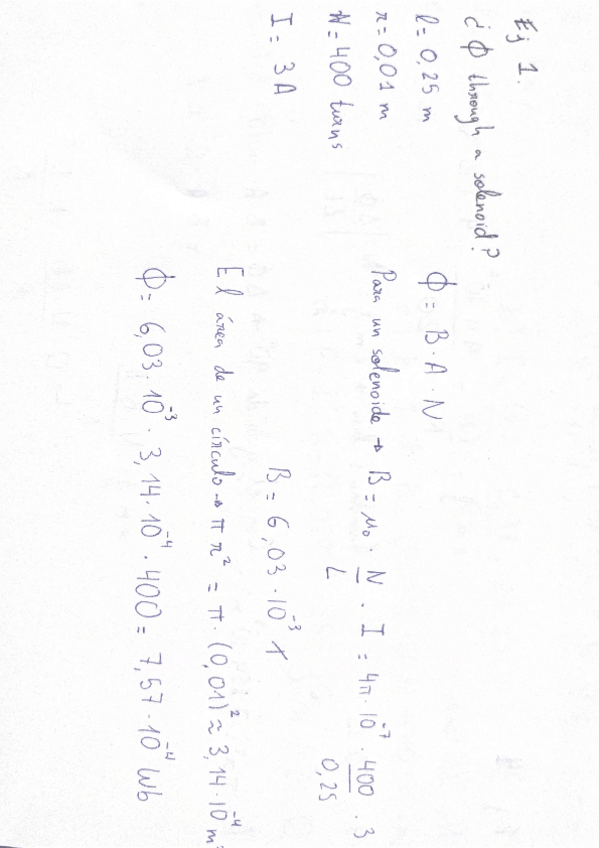 Ej 1.
¿ϕ through a solenoid?
l = 0,25 m
r = 0,01 m
N = 400 turns
I = 3A
ϕ = B · A · N
Para un solenoide → B = μ₀ · N/L · I = 4π · 10⁻⁷ · 400/0,25 · 3
B = 6,03 · 10⁻³ T
El área de un círculo → π r² = π · (0,01)² ≈ 3,14 · 10⁻⁴ m
ϕ = 6,03 · 10⁻³ · 3,14 · 10⁻⁴ · 400 = 7,57 · 10⁻⁴ Wb